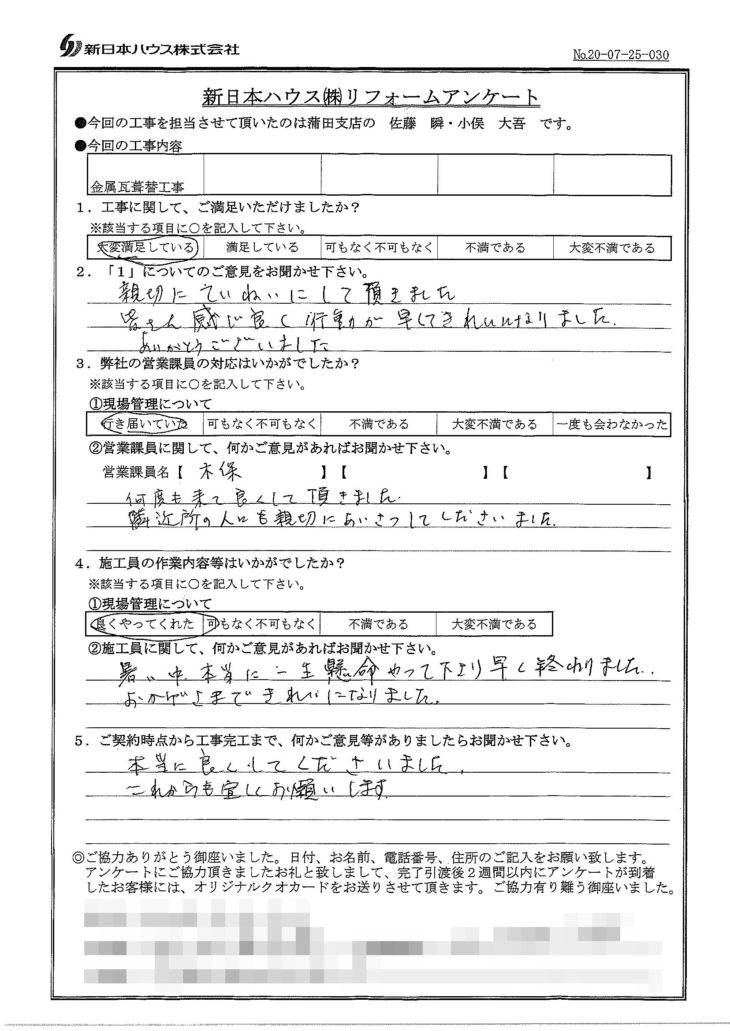 新日本ハウス株式会社
No.20-07-25-030
新日本ハウス㈱リフォームアンケート
●今回の工事を担当させて頂いたのは蒲田支店の 佐藤 瞬・小俣 大吾 です。
●今回の工事内容
金属瓦葺替工事
1．工事に関して、ご満足いただけましたか？
※該当する項目に○を記入して下さい。
大変満足している 満足している 可もなく不可もなく 不満である 大変不満である
2．「1」についてのご意見をお聞かせ下さい。
親切にていねいにして頂きました
皆さん感じ良く行動が早くてきれいになりました.
ありがとうございました
3．弊社の営業課員の対応はいかがでしたか？
※該当する項目に○を記入して下さい。
①現場管理について
行き届いていた 可もなく不可もなく 不満である 大変不満である 一度も会わなかった
②営業課員に関して、何かご意見があればお聞かせ下さい。
営業課員名【 木保 】【 】【 】
何度も来て良くして頂きました.
隣近所の人にも親切にあいさつしてくださいました.
4．施工員の作業内容等はいかがでしたか？
※該当する項目に○を記入して下さい。
①現場管理について
良くやってくれた 可もなく不可もなく 不満である 大変不満である
②施工員に関して、何かご意見があればお聞かせ下さい。
暑い中本当に一生懸命やって下さり早く終わりました.
おかげさまできれいになりました.
5．ご契約時点から工事完工まで、何かご意見等がありましたらお聞かせ下さい。
本当に良くしてくださいました.
これからも宜しくお願いします
◎ご協力ありがとう御座いました。日付、お名前、電話番号、住所のご記入をお願い致します。
アンケートにご協力頂きましたお礼と致しまして、完了引渡後2週間以内にアンケートが到着
したお客様には、オリジナルクオカードをお送りさせて頂きます。ご協力有り難う御座いました。